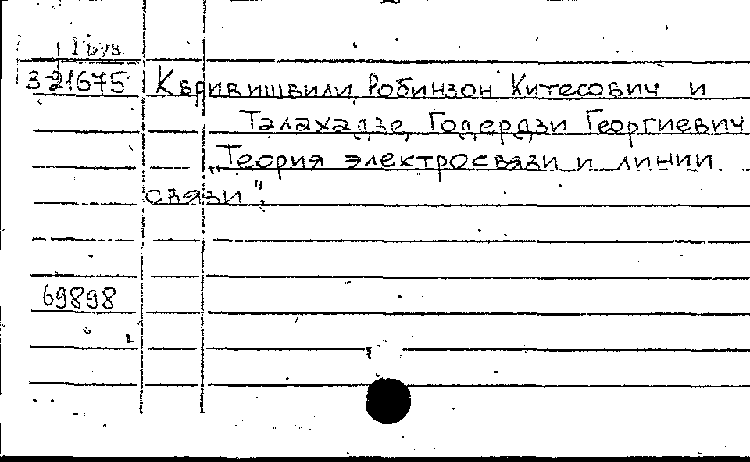 Груз
321675 Квривишвили, Робинзон Китесович и
Талахадзе, Годердзи Георгиевич
„Теория электросвязи и линии
связи".
69898